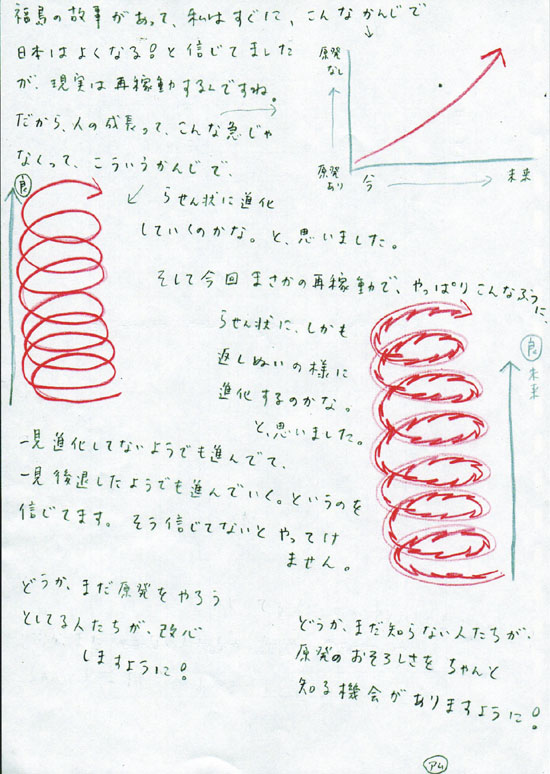 福島の故事があって、私はすぐに、こんなかんじで
日本はよくなる!と信じてました
が、現実は再稼動するんですね。
だから、人の成長って、こんな急じゃ
なくって、こういうかんじで、
原発
なし
原発
あり
今
未来
良
らせん状に進化
していくのかな。と、思いました。
そして今回まさかの再稼動で、やっぱりこんなふうに、
らせん状に、しかも
返しぬいの様に
進化するのかな。
と、思いました。
良
未来
一見進化してないようでも進んでて、
一見後退したようでも進んでいく。というのを
信じてます。そう信じてないとやってけ
ません。
どうか、まだ原発をやろう
としてる人たちが、改心
しますように!
どうか、まだ知らない人たちが、
原発のおそろしさをちゃんと
知る機会がありますように!
アム